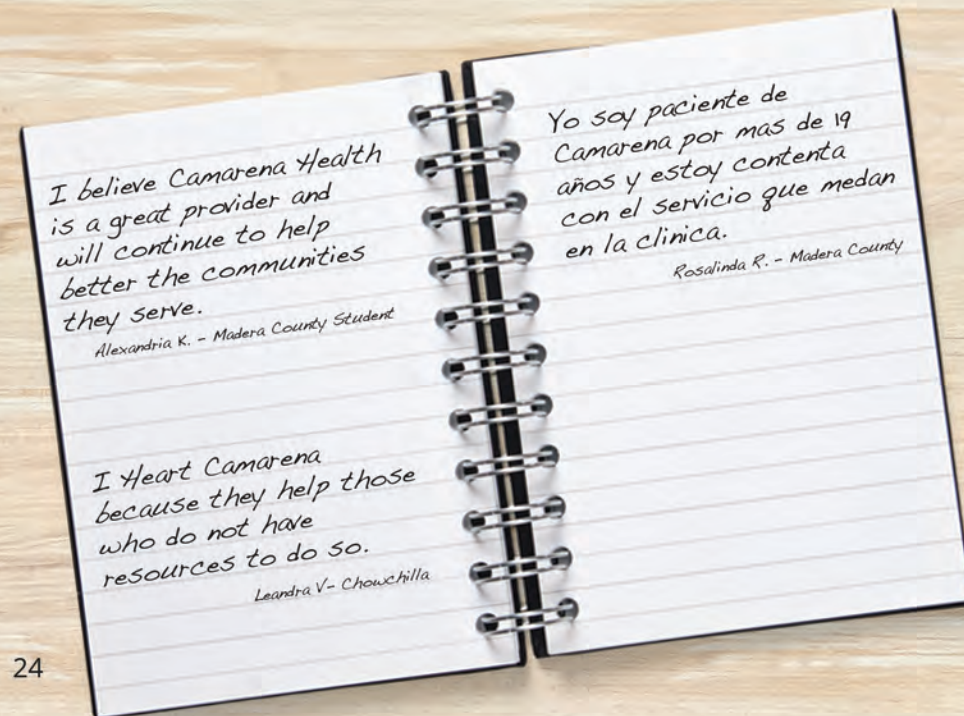 I believe Camarena Health
is a great provider and
will continue to help
better the communities
they serve.
Alexandria K. - Madera County Student
I Heart Camarena
because they help those
who do not have
resources to do so.
Leandra V- Chowchilla
Yo soy paciente de
Camarena por mas de 19
años y estoy contenta
con el servicio que medan
en la clinica.
Rosalinda R. - Madera County
24